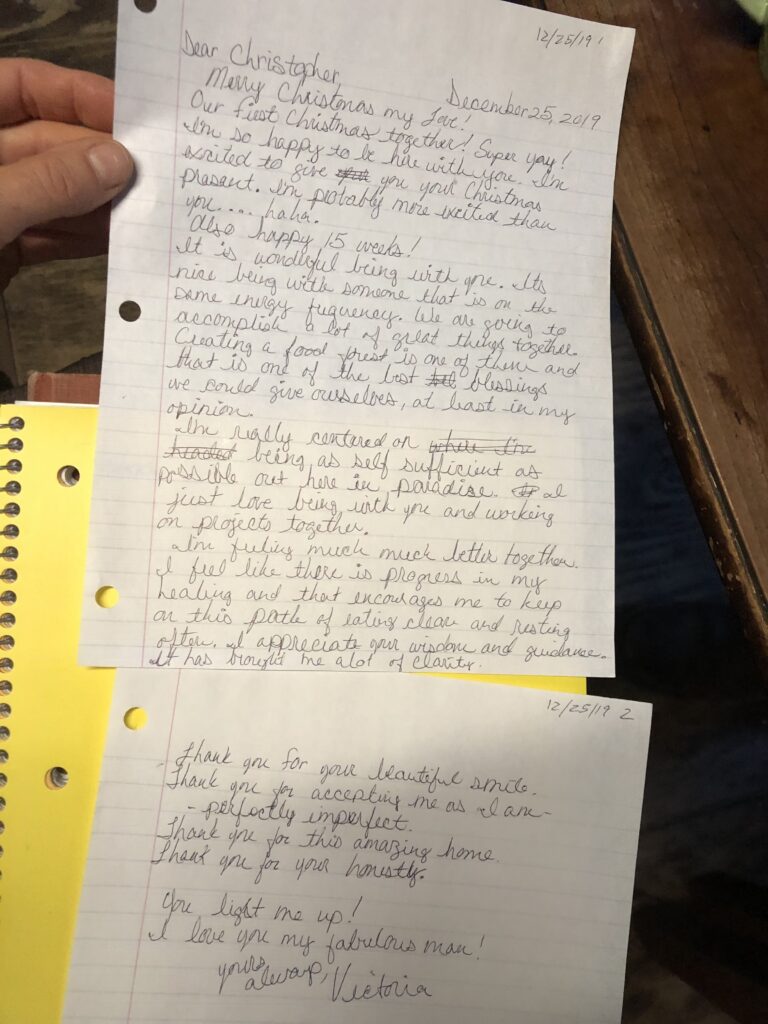 12/25/19 1
Dear Christopher,
December 25, 2019
Merry Christmas my Love!
Our first Christmas together! Super yay!
I'm so happy to be here with you. I'm
excited to give you your Christmas
present. I'm probably more excited than
you.... haha.
Also happy 15 weeks!
It is wonderful being with you. Its
nice being with someone that is on the
same energy fuquency. We are going to
accomplish a lot of great things together.
Creating a food forest is one of them and
that is one of the best blessings
we could give ourselves, at least in my
opinion.
I'm really centered on where I'm
headed being as self sufficient as
possible out here in paradise. I
just love being with you and working
on projects together.
I'm feeling much much better together.
I feel like there is progress in my
healing and that encourages me to keep
on this path of eating clean and resting
often. I appreciate your wisdom and guidance.
It has brought me alot of clarity.
12/25/19 2
Thank you for your beautiful smile.
Thank you for accepting me as I am-
- perfectly imperfect.
Thank you for this amazing home.
Thank you for your honestly.
You light me up!
I love you my fabulous man!
yours
always,
Victoria